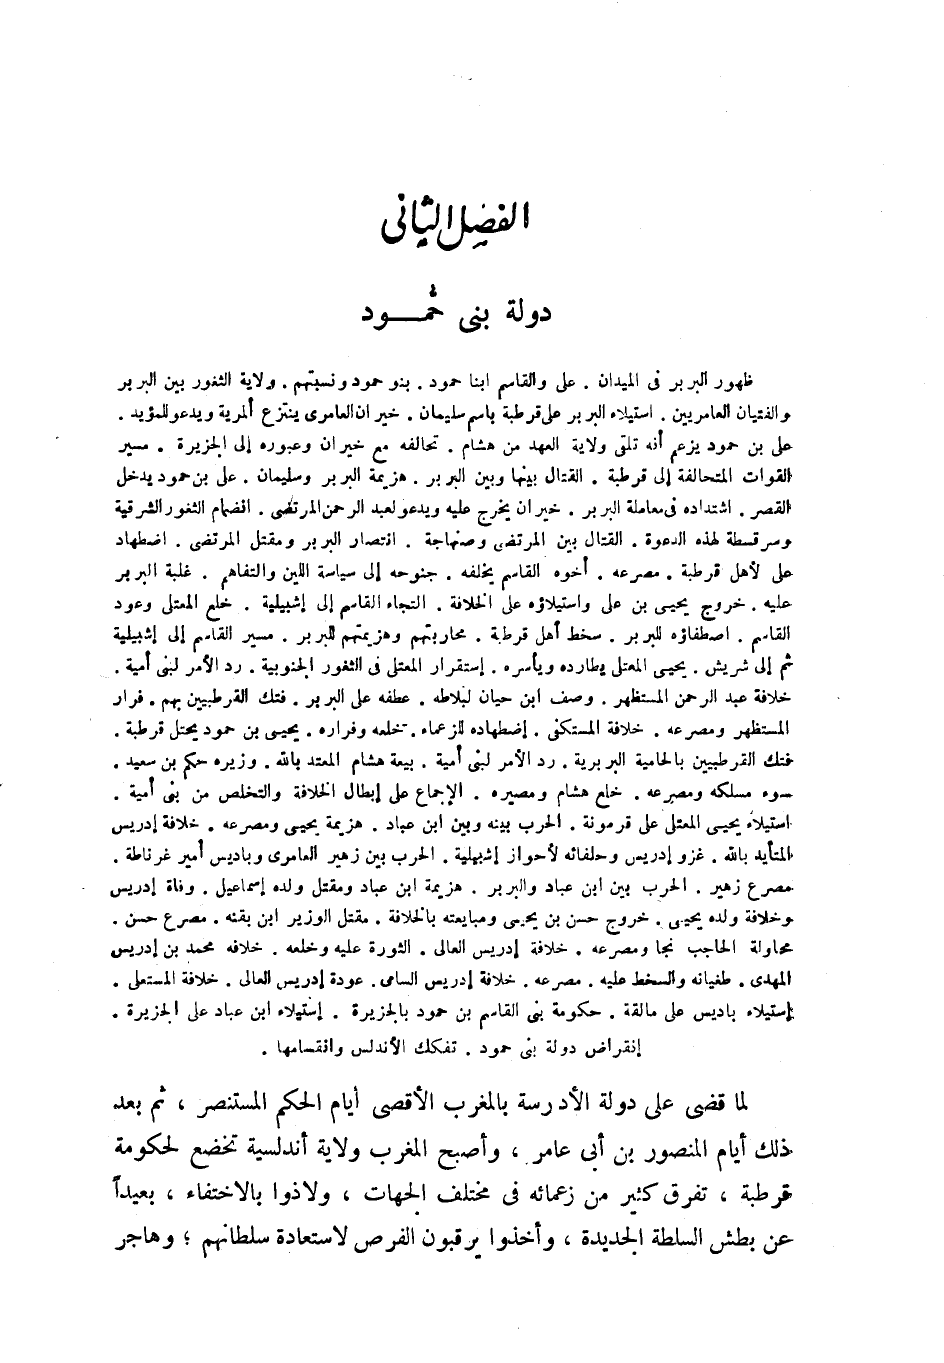 الفصل الثانى
دولة بنى حمود
ظهور البربر فى الميدان . على والقاسم ابنا حمود . بنو حمود ونسبتهم . ولاية الثغور بين البربر
والفتيان العامريين . استيلاء البربر على قرطبة باسم سليمان . خيران العامرى ينتزع ألمرية ويدعو للمؤيد .
على بن حمود يزعم أنه تلقى ولاية العهد من هشام . تحالفه مع خيران وعبوره إلى الجزيرة . مسير
القوات المتحالفة إلى قرطبة . القتال بينها وبين البربر . هزيمة البربر وسليمان . على بن حمود يدخل
القصر . اشتداده فى معاملة البربر . خيران يخرج عليه ويدعو لعبد الرحمن المرتضى . انضمام الثغور الشرقية
وسرقسطة لهذه الدعوة . القتال بين المرتضى وصنهاجة . انتصار البربر ومقتل المرتضى . اضطهاد
على لأهل قرطبة . مصرعه . أخوه القاسم يخلفه . جنوحه إلى سياسة اللين والتفاهم . غلبة البربر
عليه . خروج يحيى بن على واستيلاؤه على الخلافة . التجاء القاسم إلى إشبيلية . خلع المعتلى وعود
القاسم . اصطفاؤه للبربر . سخط أهل قرطبة . محاربتهم وهزيمتهم للبربر . مسير القاسم إلى إشبيلية
ثم إلى شريش . يحيى المعتلى يطارده ويأسره . إستقرار المعتلى فى الثغور الجنوبية . رد الأمر لبنى أمية .
خلافة عبد الرحمن المستظهر . وصف ابن حيان لبلاطه . عطفه على البربر . فتك القرطبيين بهم . فرار
المستظهر ومصرعه . خلافة المستكفى . إضطهاده للزعماء . خلعه وفراره . يحيى بن حمود يحتل قرطبة .
فتك القرطبيين بالحامية البربرية . رد الأمر لبنى أمية . بيعة هشام المعتد بالله . وزيره حكم بن سعيد .
سوء مسلكه ومصرعه . خلع هشام ومصيره . الإجماع على إبطال الخلافة والتخلص من بنى أمية .
استيلاء يحيى المعتلى على قرمونة . الحرب بينه وبين ابن عباد . هزيمة يحيى ومصرعه . خلافة إدريس
المتأيد بالله . غزو إدريس وحلفائه لأحواز إشبيلية . الحرب بين زهير العامرى وباديس أمير غرناطة .
مصرع زهير . الحرب بين ابن عباد والبربر . هزيمة ابن عباد ومقتل ولده إسماعيل . وفاة إدريس
وخلافة ولده يحيى . خروج حسن بن يحيى ومبايعته بالخلافة . مقتل الوزير ابن بقنه . مصرع حسن .
محاولة الحاجب نجا ومصرعه . خلافة إدريس العالى . الثورة عليه وخلعه . خلافه محمد بن إدريس
المهدى . طغيانه والسخط عليه . مصرعه . خلافة إدريس السامى . عودة إدريس العالى . خلافة المستعلى .
إستيلاء باديس على مالقة . حكومة بنى القاسم بن حمود بالجزيرة . إستيلاء ابن عباد على الجزيرة .
إنقراض دولة بنى حمود . تفكك الأندلس وانقسامها .
لما قضى على دولة الأدرسة بالمغرب الأقصى أيام الحكم المستنصر ، ثم بعد
ذلك أيام المنصور بن أبى عامر ، وأصبح المغرب ولاية أندلسية تخضع لحكومة
قرطبة ، تفرق كثير من زعمائه فى مختلف الجهات ، ولاذوا بالاختفاء ، بعيداً
عن بطش السلطة الجديدة ، وأخذوا يرقبون الفرص لاستعادة سلطانهم ؛ وهاجر